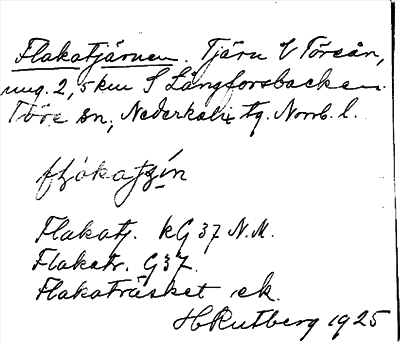 Flakatjärnen. Tjärn V Töreån,
ung. 2,5 km S Långforsbacken.
Töre sn, Nederkalix tg. Norrb. l.
Flakatj. kG 37 N.M.
Flakatr. G37.
Flakaträsket ek.
H Rutberg 1925